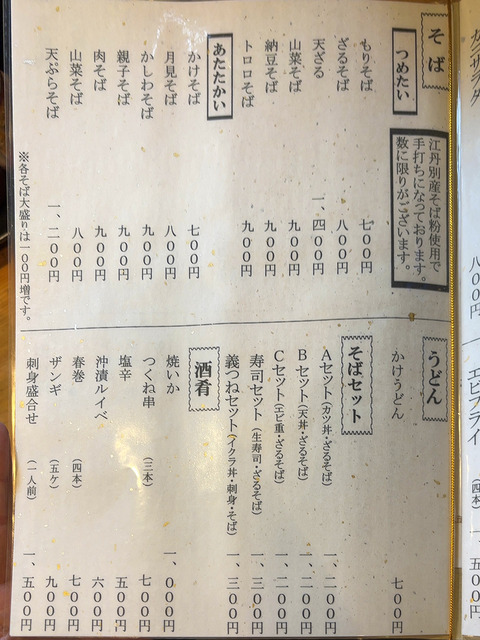 そば
江丹別産そば粉使用で
手打ちになっております。
数に限りがございます。
つめたい
もりそば 七〇〇円
ざるそば 八〇〇円
天ざる 一、四〇〇円
山菜そば 九〇〇円
納豆そば 九〇〇円
トロロそば 九〇〇円
あたたかい
かけそば 七〇〇円
月見そば 八〇〇円
かしわそば 九〇〇円
親子そば 九〇〇円
肉そば 九〇〇円
山菜そば 八〇〇円
天ぷらそば 一、二〇〇円
※各そば大盛りは一〇〇円増です。
うどん
かけうどん 七〇〇円
そばセット
Aセット(カツ丼・ざるそば) 一、二〇〇円
Bセット(天丼・ざるそば) 一、二〇〇円
Cセット(エビ重・ざるそば) 一、二〇〇円
寿司セット(生寿司・ざるそば) 一、三〇〇円
義つねセット(イクラ丼・刺身・そば) 一、三〇〇円
酒肴
焼いか 一、〇〇〇円
つくね串(三本) 七〇〇円
塩辛 五〇〇円
沖漬ルイベ 六〇〇円
春巻(四本) 七〇〇円
ザンギ(五ケ) 九〇〇円
刺身盛合せ(一人前) 一、五〇〇円
八〇〇円
エビフライ(四本)